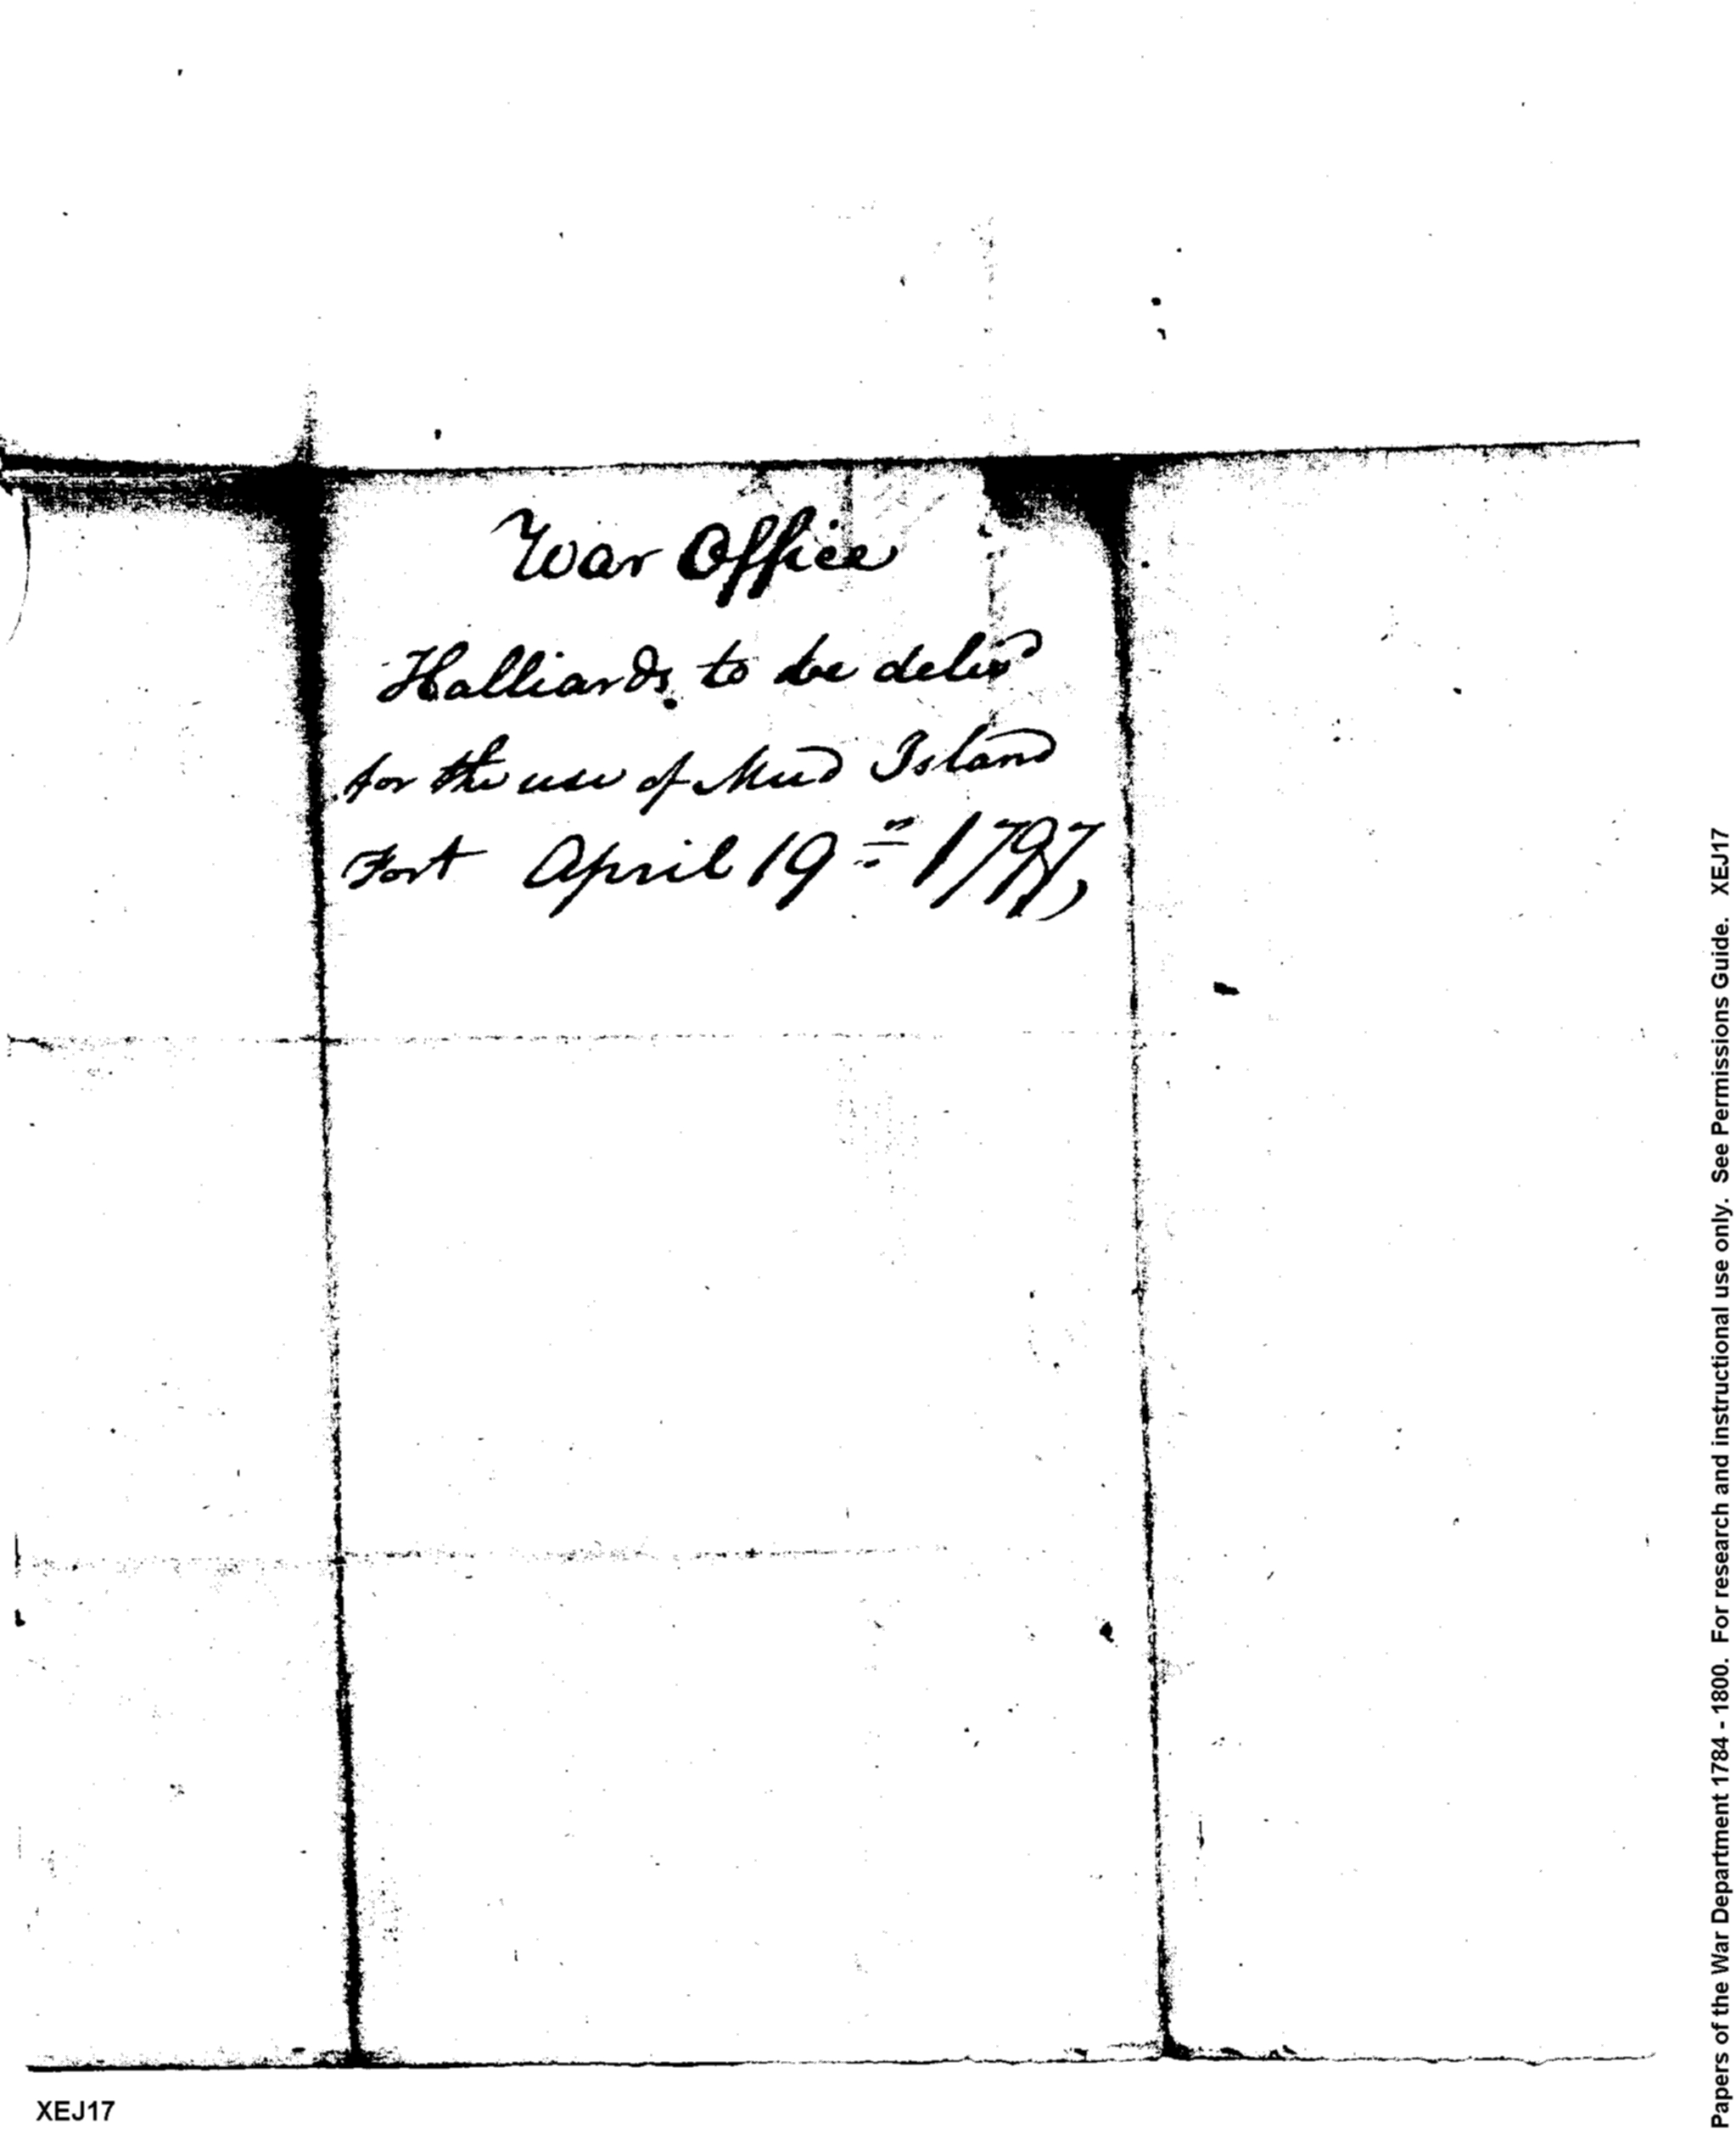 War Office
Halliards to be deliv'd
for the use of Mud Island
Fort April 19th 1797,
XEJ17
Papers of the War Department 1784 - 1800. For research and instructional use only. See Permissions Guide. XEJ17